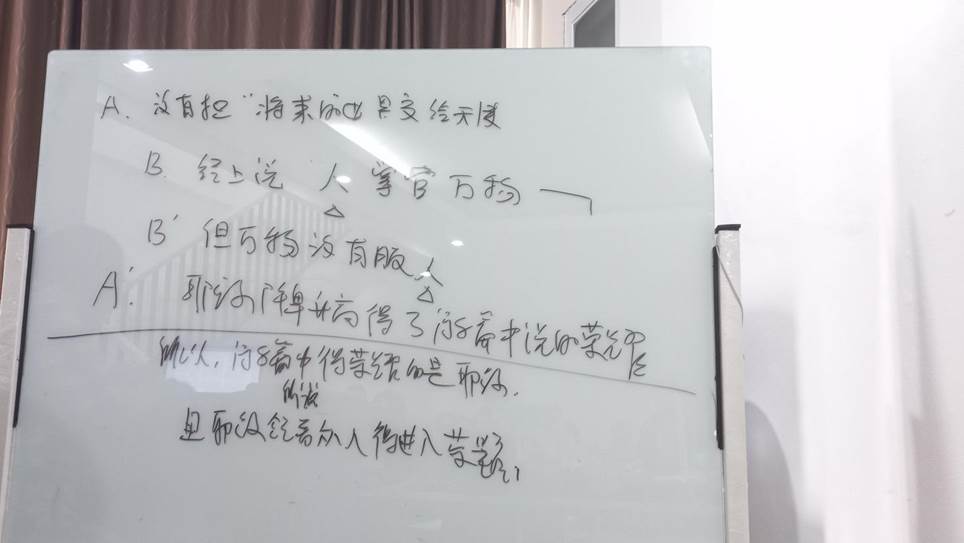 A. 没有把“将来的世界交给天使
B. 经上说 人 掌管万物
B' 但万物没有服人
A'. 耶稣降卑升高得了诗8篇中说的荣耀
所以, 诗8篇中得荣耀的是耶稣.
所说
且耶稣领着众人得进入荣耀,